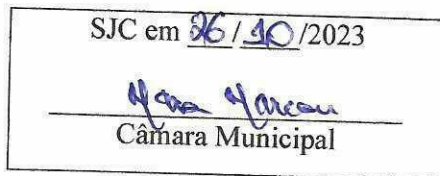 SJC em 26/10/2023
Câmara Municipal